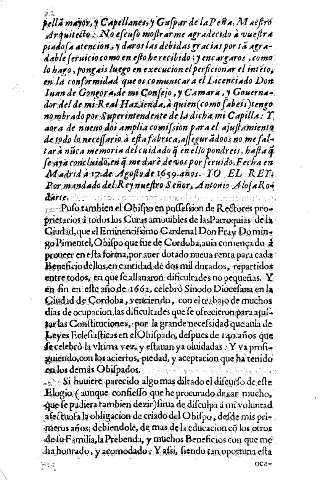 pella mayor, y Capellanes, y Gaspar de la Peña, Maestro
Arquitecto: No escuso mostrarme agradecido à vuestra
piadosa atencion, y daros las debidas gracias por tã agra-
dable servicio como en esto he recibido; y encargaros, como
lo hago, pongais luego en execucion el perficionar el intẽto,
en la conformidad que os comunicarà el Licenciado Don
Iuan de Gongora, de mi Consejo, y Camara, y Governa-
dor del de mi Real Hazienda, à quien (como sabeis) tengo
nombrado por Superintendente de la dicha mi Capilla: Y
aora de nuevo doi amplia comission para el ajustamiento
de todo lo necessario à esta fabrica, assegurãdoos no me fal-
tarà nũca memoria del cuidado q̃ en ello pondreis, hasta q̃
se aya concluido, en q̃ me darè de vos por servido. Fecha en
Madrid à 17. de Agosto de 1659. años. YO EL REY.
Por mandado del Rey nuestro Señor, Antonio Alosa Ro-
darte.
Puso tambien el Obispo en possession de Rectores pro-
prietarios à todos los Curas amovibles de las Parroquias de la
Ciudad, que el Eminencissimo Cardenal Don Fray Domin-
go Pimentel, Obispo que fue de Cordoba, avia comenzado à
proveer en esta forma, por aver dotado nueva renta para cada
Beneficio dellos, en cantidad de dos mil ducados, repartidos
entre todos, en que se allanaron dificultades no pequeñas. Y
en fin en este año de 1662. celebrò Sinodo Diocesana en la
Ciudad de Cordoba, venciendo, con el trabajo de muchos
dias de ocupacion, las dificultades que se ofrecieron para ajus-
tar las Constituciones, por la grande necesidad que avia de
Leyes Eclesiasticas en el Obispado, despues de 140. años que
se celebrò la vltima vez, y estavan ya olvidadas: Y va prosi-
guiendo, con los aciertos, piedad, y aceptacion que ha tenido
en los demàs Obispados.
Si huviere parecido algo mas diltado el discurso de este
Elogio (aunque confiesso que he procurado dexar mucho,
que se pudiera tambien dezir) sirva de disculpa à mi voluntad
afectuosa la obligacion de criado del Obispo, desde mis pri-
meros años; debiendole, de mas de la educacion cõ los otros
de su Familia, la Prebenda, y muchos Beneficios con que me
ha honrado, y acomodado: Y assi, siendo tan oportuna esta
oca-